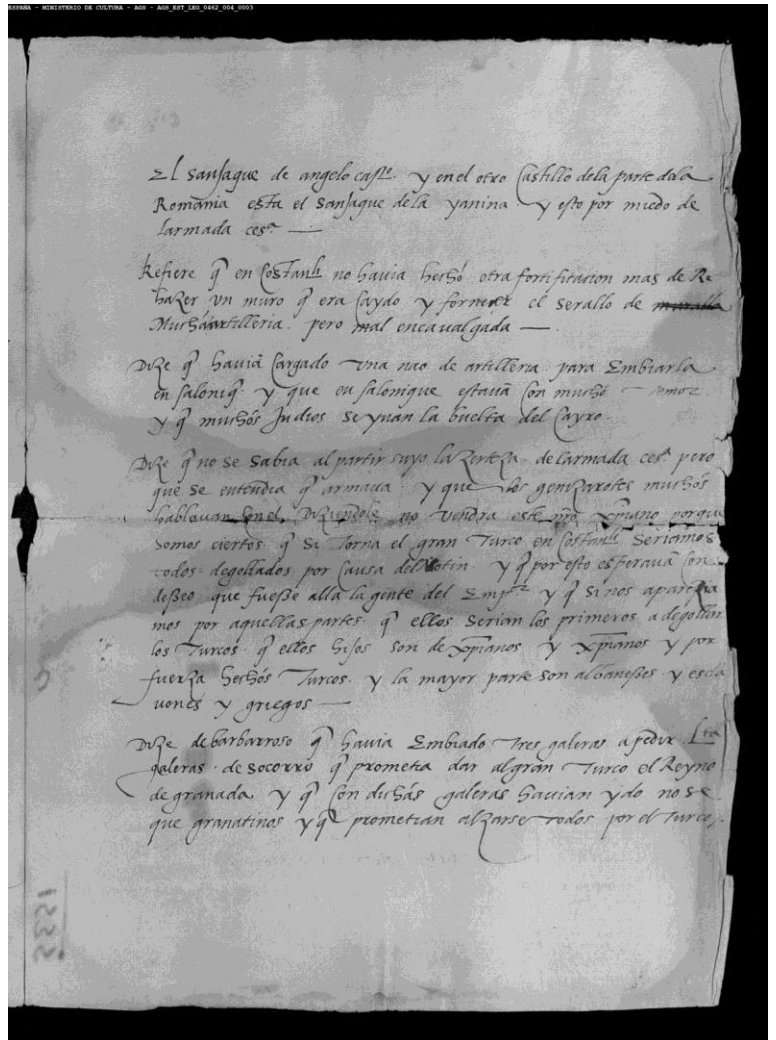 ESPAÑA - MINISTERIO DE CULTURA - AGS - AGS_EST_LEG_0462_004_0003
El sanjaque de angelo castº. y en el otro Castillo dela parte dela
Romania esta el sanjaque dela yanina y esto por miedo de
larmada cesª —
Refiere q̃ en Costanli no havia hechó otra fortificacion mas de Re
hazer vn muro q̃ era Caydo y fornecer el serallo de muralla
Muchá artilleria. pero mal encavalgada —
Dize q̃ haviã Cargado vna nao de artilleria para Embiarla
en saloniq̃. y que en salonique estavã con muchó temor
y q̃ muchós Judios se yuan la buelta del Cayro.
Dize q̃ no se sabia al partir suyo la Zerteza de larmada cesª pero
que se entendia q̃ armava y que los genizarotes muchós
hablavan con el, diziendole no vendra este xp̃iano porque
somos ciertos q̃ si torna el gran Turco en Costanli seriamos
todos degollados por causa del Motin. y q̃ por esto esperavã con
desseo que fuesse alla la gente del Empᵒʳ y q̃ si nos apareçia
mos por aquellas partes. q̃ ellos serian los primeros a degollar
los Turcos. q̃ ellos hijos son de xp̃ianos y xp̃ianos y por
fuerza hechós Turcos. y la mayor parte son albanesses. y escla
uones y griegos —
Dize de barbarroso q̃ havia Embiado tres galeras a pedir Lta
galeras. de socorro q̃ prometia dar al gran Turco el Reyno
de granada y q̃ con dichás galeras havian ydo no se
que granatinos y q̃ prometian alzarse todos por el Turco,
1532